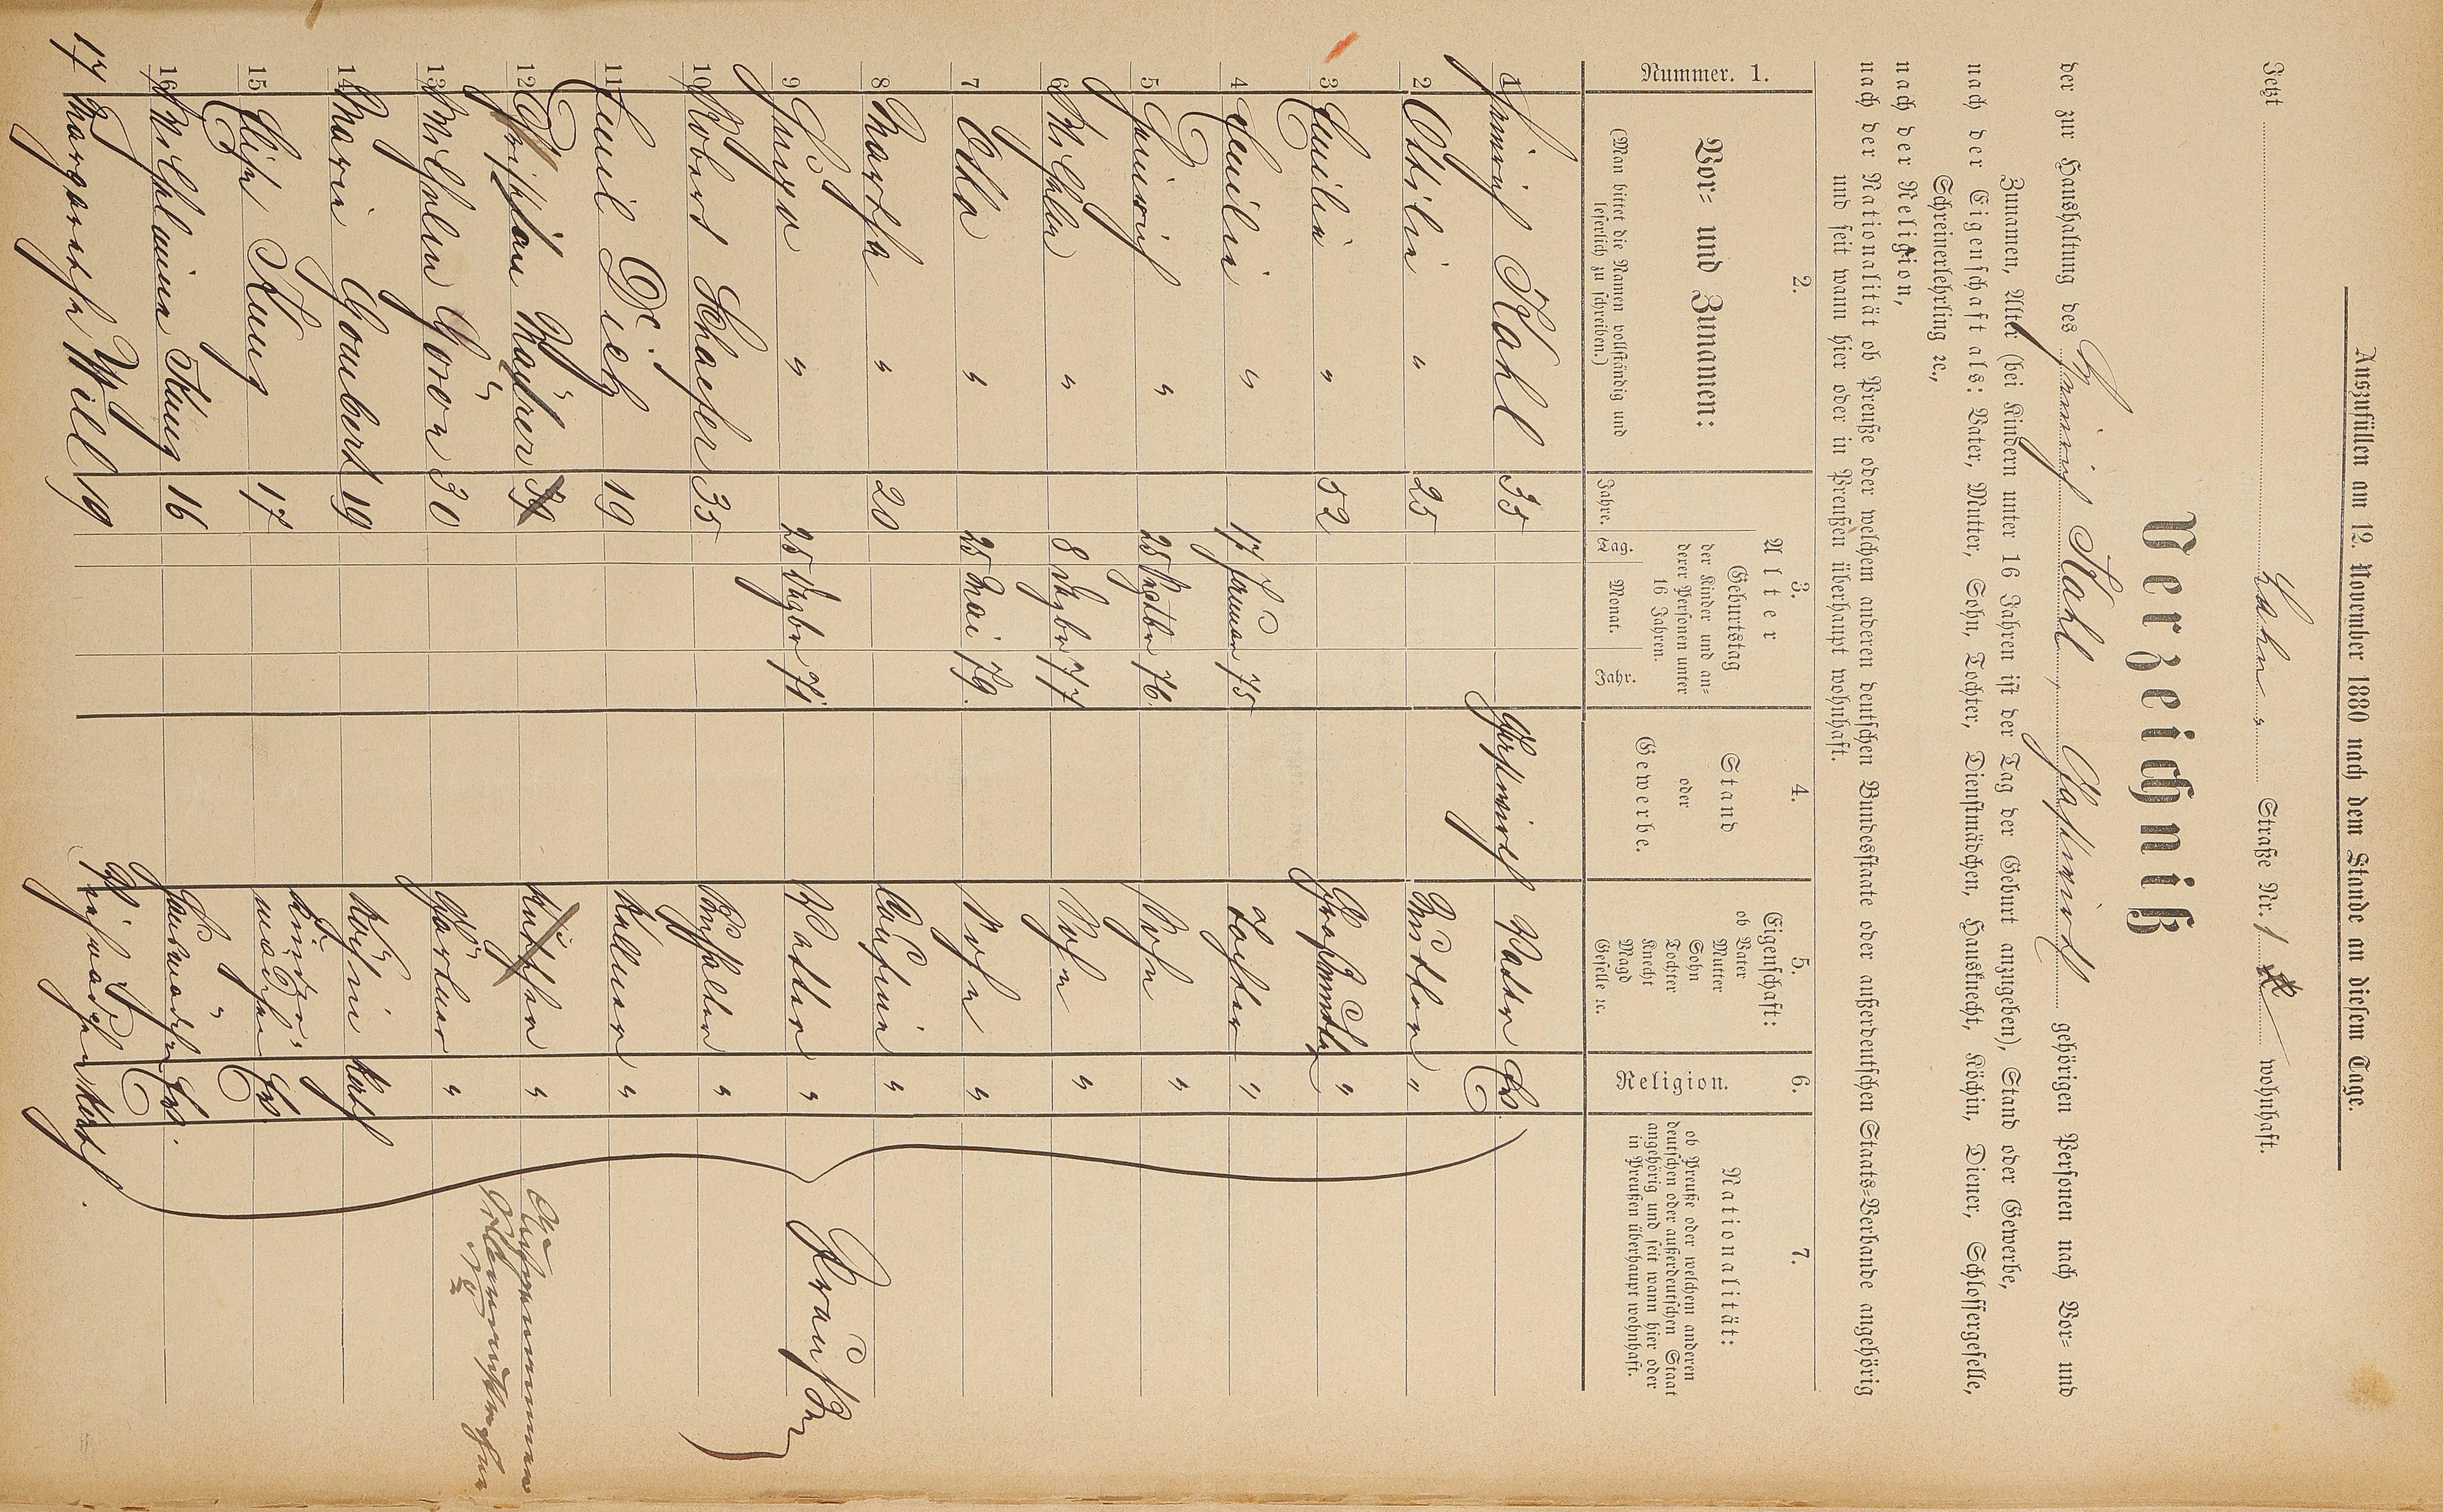 Auszufüllen am 12. November 1880 nach dem Stande an diesem Tage.
Jetzt Lahn " Straße Nr. 1 wohnhaft.
Verzeichniß
der zur Haushaltung des Heinrich Kahl, Gastwirth gehörigen Personen nach Vor- und
Zunamen, Alter (bei Kindern unter 16 Jahren ist der Tag der Geburt anzugeben), Stand oder Gewerbe,
nach der Eigenschaft als: Vater, Mutter, Sohn, Tochter, Dienstmädchen, Hausknecht, Köchin, Diener, Schlossergeselle,
Schreinerlehrling ꝛc.,
nach der Religion,
nach der Nationalität ob Preuße oder welchem anderen deutschen Bundesstaate oder außerdeutschen Staats-Verbande angehörig
und seit wann hier oder in Preußen überhaupt wohnhaft.
Nummer. 1.
2.
Vor- und Zunamen:
(Man bittet die Namen vollständig und
leserlich zu schreiben.)
3.
Alter
Jahre.
Geburtstag
der Kinder und an-
derer Personen unter
16 Jahren.
Tag. Monat. Jahr.
4.
Stand
oder
Gewerbe.
5.
Eigenschaft:
ob Vater
Mutter
Sohn
Tochter
Knecht
Magd
Geselle ꝛc.
6.
Religion.
7.
Nationalität:
ob Preuße oder welchem anderen
deutschen oder außerdeutschen Staat
angehörig und seit wann hier oder
in Preußen überhaupt wohnhaft.
1 Heinrich Kahl 35 Gastwirth Vater Ev.
2 Ottilie " 25 Mutter "
3 Emilie " 52 Großmutter "
4 Emilie " 17 Januar 75 Tochter "
5 Heinrich " 25 Septbr 76 Sohn "
6 Wilhelm " 8 Dezbr 77 Sohn "
7 Otto " 25 Mai 79. Sohn "
8 Marthe " 20 Cousine "
9 Hugo " 25 Dezbr 71 Vetter "
10 Robert Schaefer 35 Buchhalter "
11 Emil Dietz 19 Kellner "
12 Christian Maurer Kutscher "
13 Wilhelm Groos 30 Gärtner "
14 Marie Gombert 19 Köchin Kath
15 Elise Kung 17 Kinder-
mädchen Ev.
16 Wilhelmine Kung 16 Hausmädchen Ev.
17 Margarethe Will 19 Kath.
Preußen